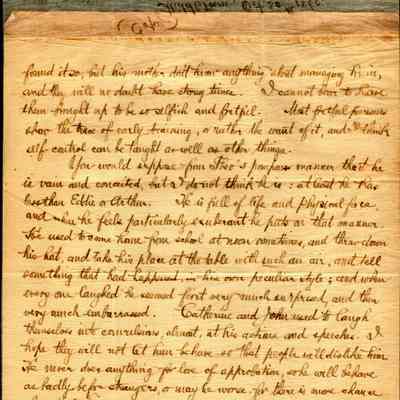 found it so, but his mother don't know anything about managing him,
and they will no doubt have stormy times. I cannot bear to have
them brought up to be so selfish and fretful. Most fretful persons
show the trace of early training, or rather the want of it, and I think
self control can be taught as well as other things.
You would suppose from Otho's pompous manner that he
is vain and conceited, but I do not think he is: at least he has
less than Eddie or Arthur. He is full of life and physical force
and when he feels particularly exuberant he puts on that manner.
He used to come home from school at noon sometimes, and throw down
his hat, and take his place at the table with such an air, and tell
something that had happened in his own peculiar style; and when
every one laughed he seemed first very much surprised, and then
very much embarrassed. Catharine and John used to laugh
themselves into convulsions almost, at his actions and speeches. I
hope they will not let him behave so that people will dislike him
He never does anything for love of approbation, so he will behave
as badly before strangers, or may be worse for there is more chance